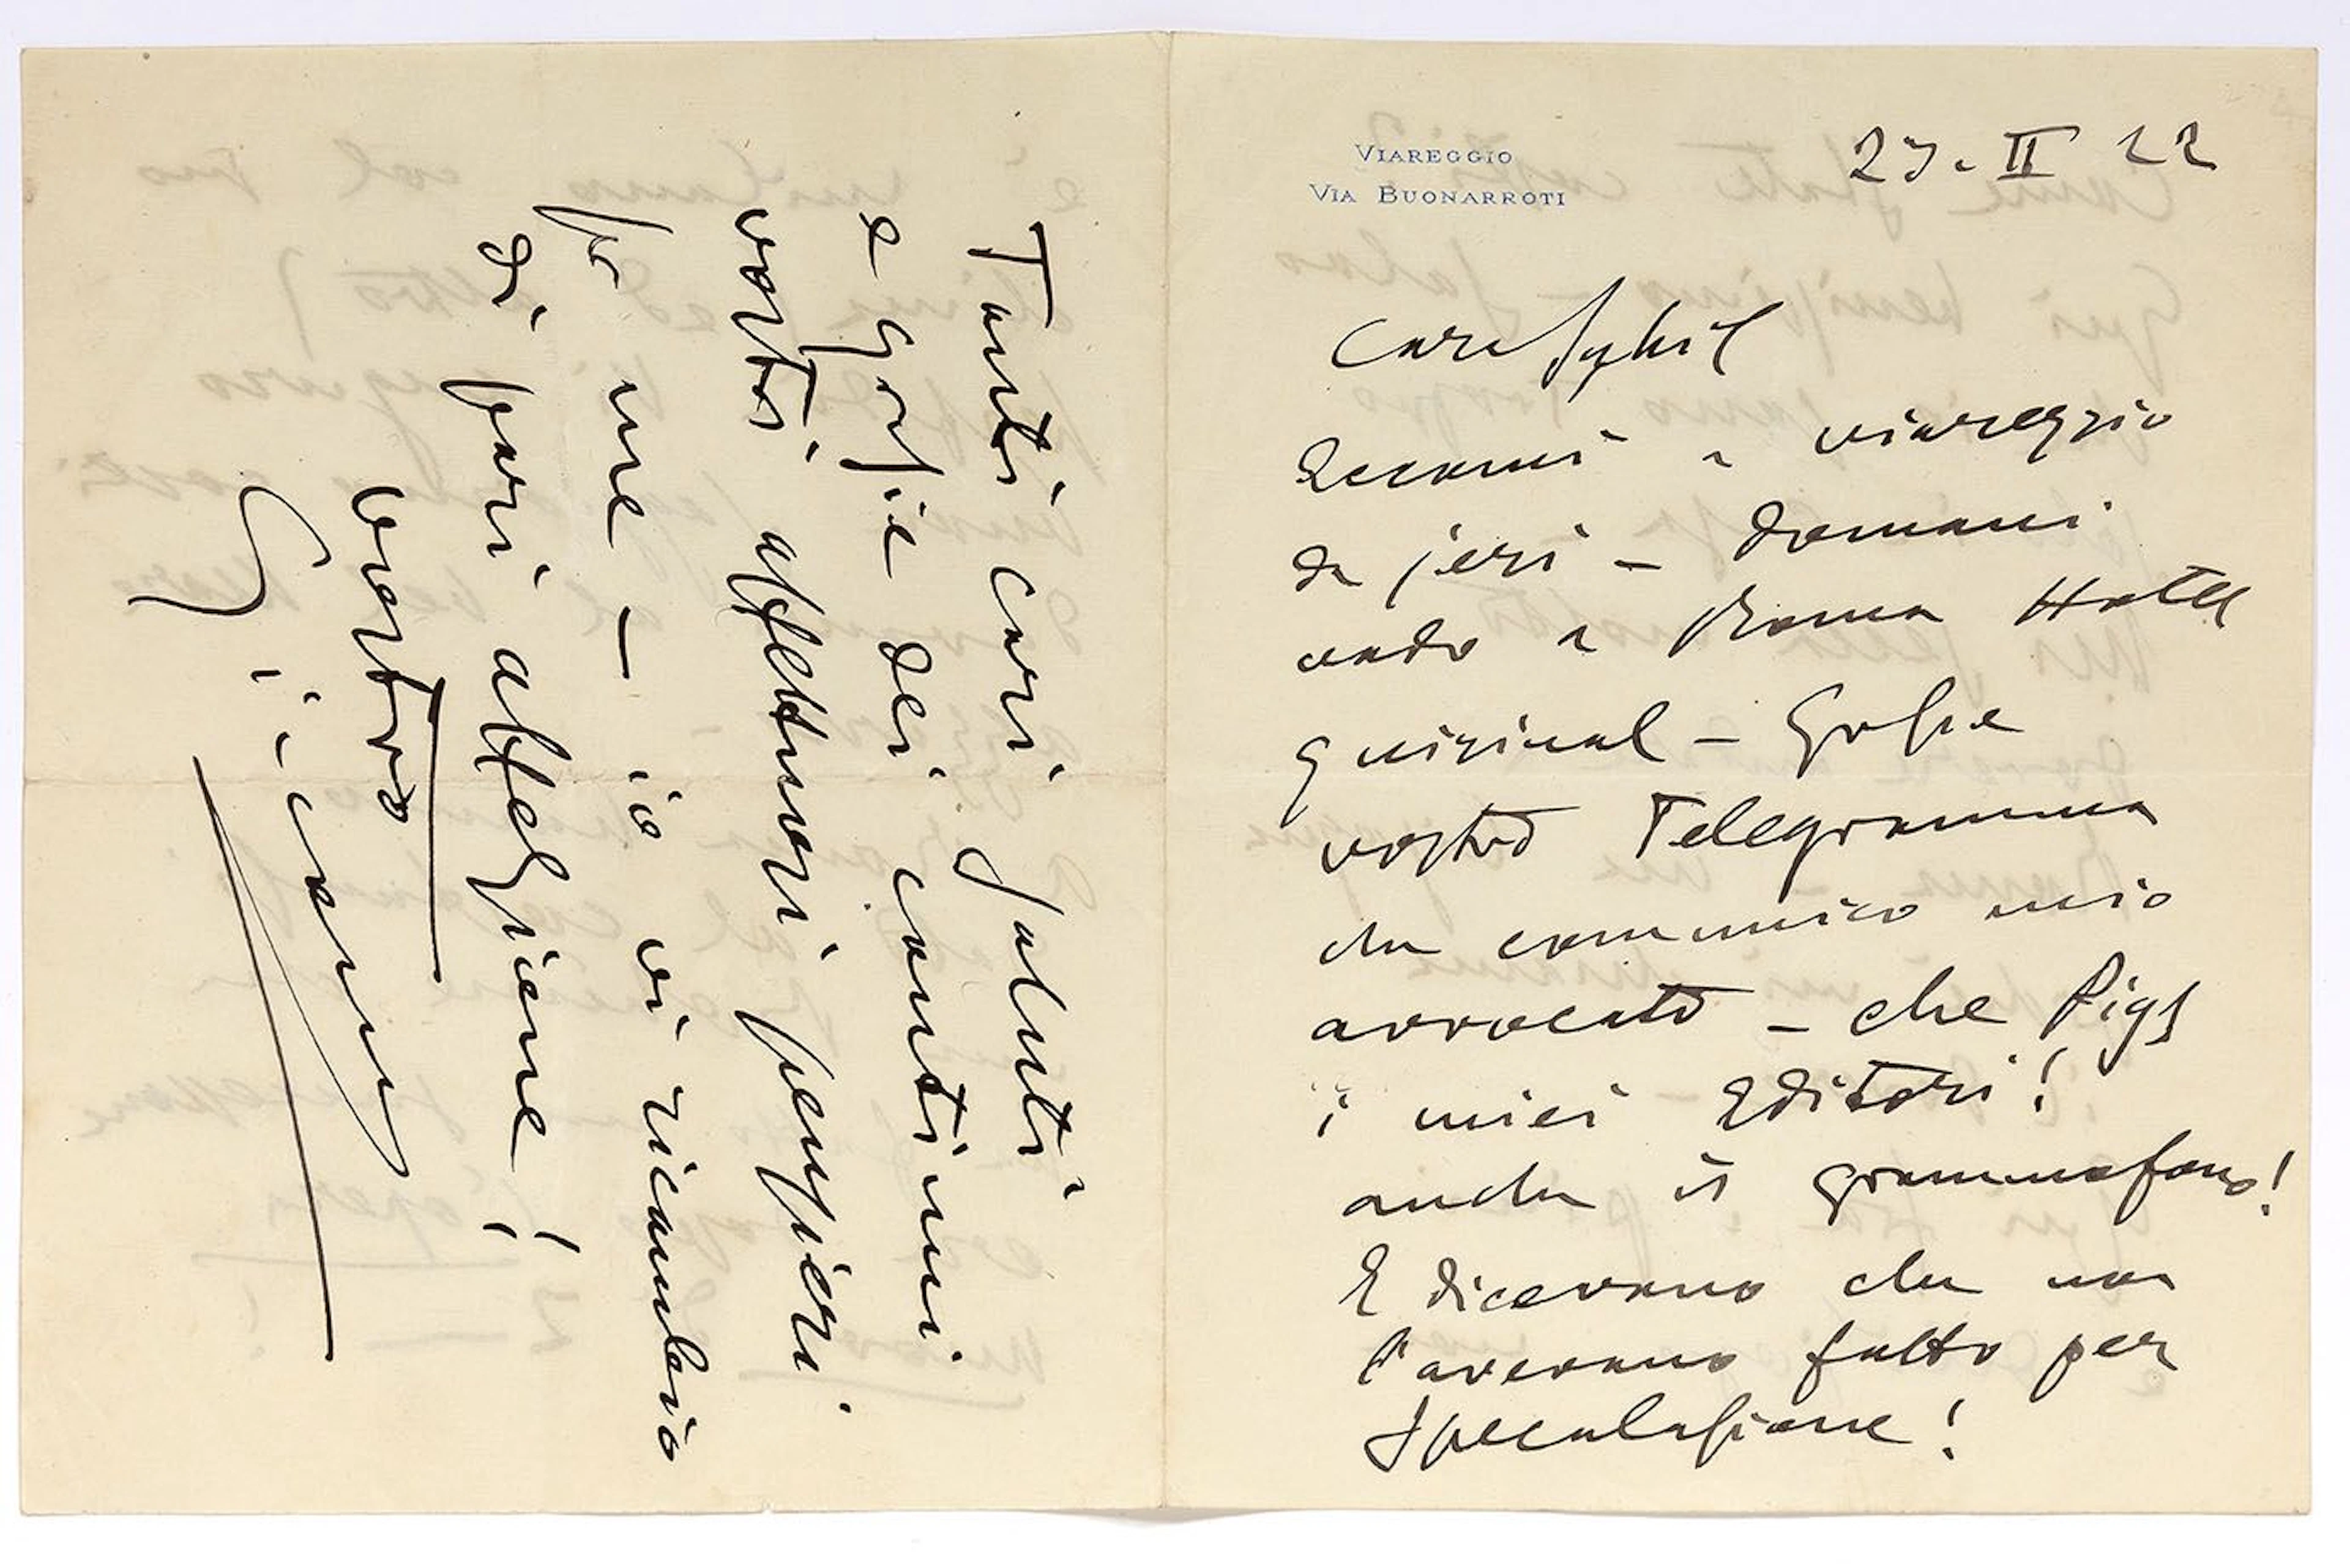 VIAREGGIO
VIA BUONARROTI
27. II 22
Cara Sybil
Eccomi a viareggio
da jeri – domani
vado a Roma Hotel
quirinal – Grazie
vostro Telegramma
che comunico mio
avvocato – che Pigs
i miei Editori!
anche il grammofono!
E dicevano che non
l'avevano fatto per
speculazione!
Tanti cari saluti
e grazie dei continui
vostri affettuosi pensieri
per me – io vi ricambio
di pari affezione!
vostro
Giacomo